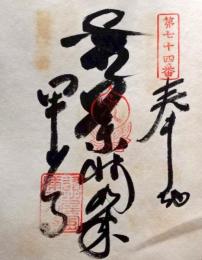 第七十四番
奉納
薬師如来
甲山寺